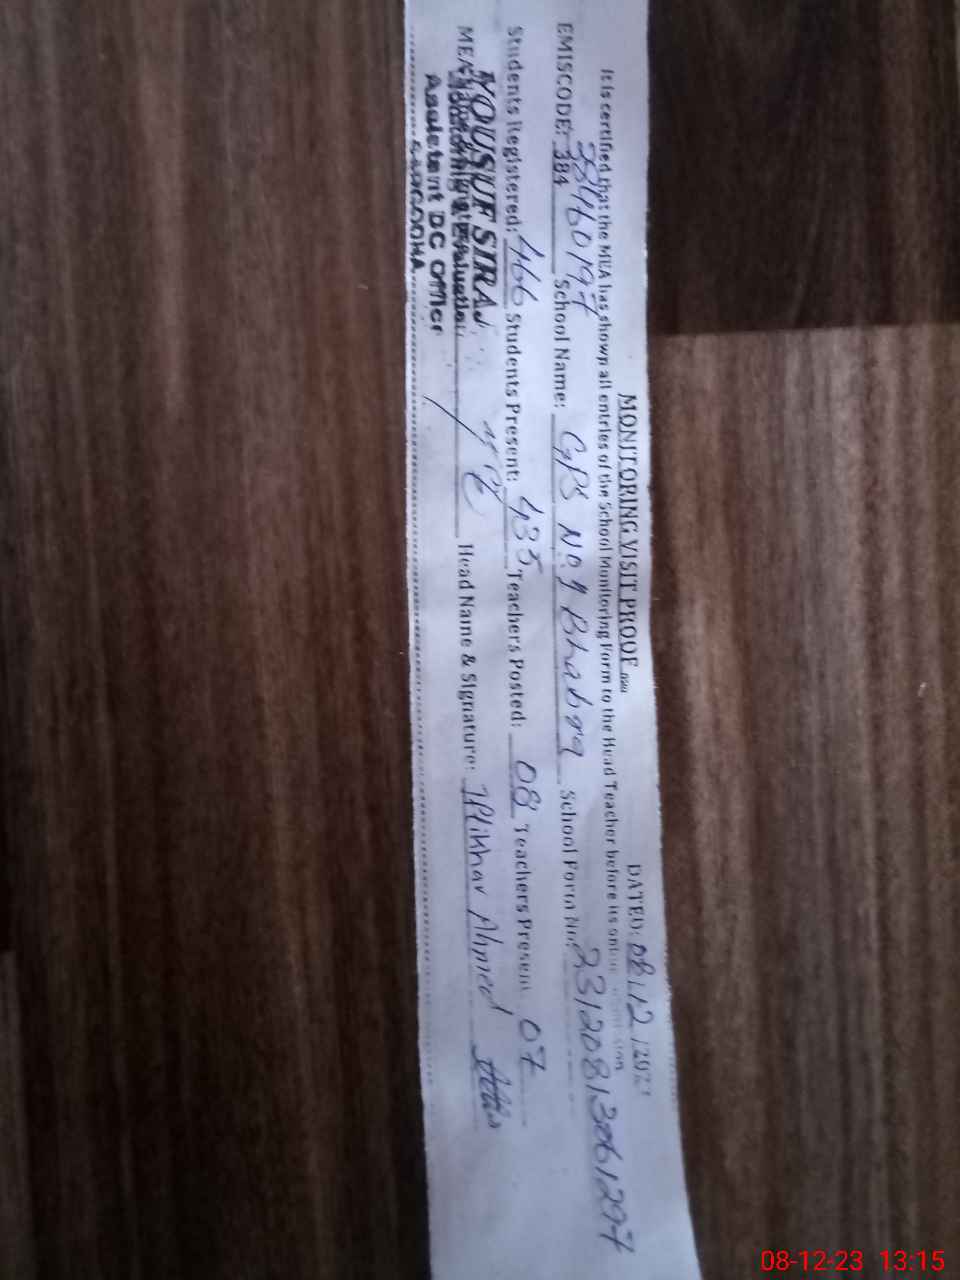 MONITORING VISIT PROOF DATED: 08/12/2023
It is certified that the MEA has shown all entries of the School Monitoring Form to the Head Teacher before its
EMISCODE: 384 38460197 School Name: GPS No 1 Bhabra School Form No: 23120813061297
Students Registered: 466 Students Present: 435 Teachers Posted: 08 Teachers Present 07
MEA Name & Signature: Head Name & Signature: Iftikhar Ahmed
YOUSUF SIRAJ
Assistent DC Officer
SARGODHA
08-12-23 13:15